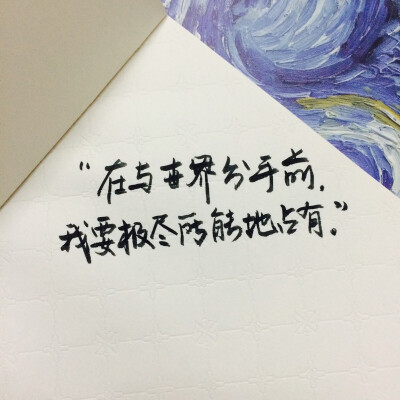 “在与世界分手前，
我要极尽所能地占有。”